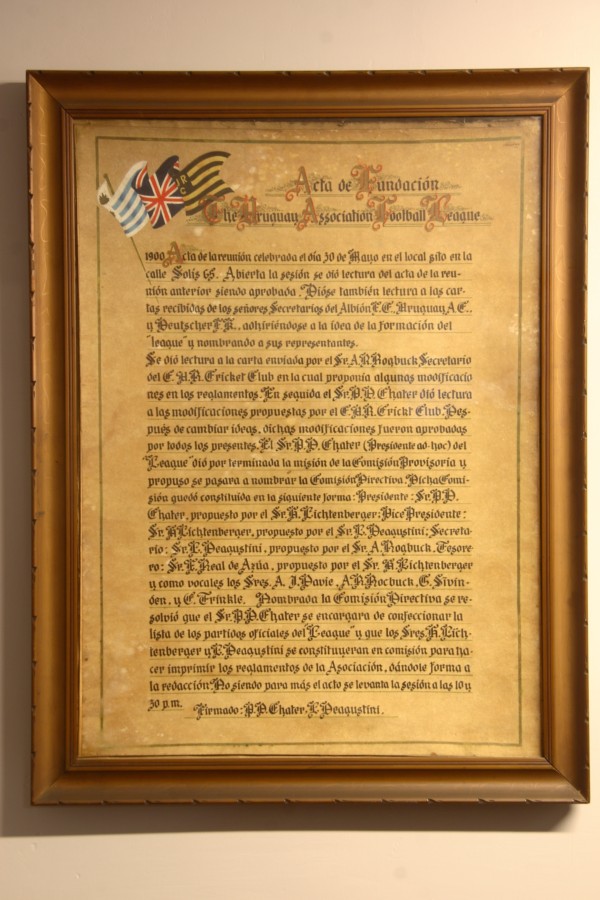 Acta de Fundación
The Uruguay Association Football League
1900 Acta de la reunión celebrada el día 30 de Mayo en el local sito en la
calle Solís 65. Abierta la sesión se dió lectura del acta de la reu-
nión anterior siendo aprobada. Dióse también lectura a las car-
tas recibidas de los señores Secretarios del Albión F.C. Uruguay A.C.,
y Deutscher F.K., adhiriéndose a la idea de la formación del
"league" y nombrando a sus representantes.
Se dió lectura a la carta enviada por el Sr. A.R. Rogbuck Secretario
del C.U.R. Cricket Club en la cual proponía algunas modificacio
nes en los reglamentos. En seguida el Sr. P.D. Chater dió lectura
a las modificaciones propuestas por el C.U.R. Crickt Club. Des-
pués de cambiar ideas, dichas modificaciones fueron aprobadas
por todos los presentes. El Sr. P.D. Chater (Presidente ad-hoc) del
"League" dió por terminada la misión de la Comisión Provisoria y
propuso se pasara a nombrar la Comisión Directiva. Dicha Comi-
sión quedó constituida en la siguiente forma: Presidente: Sr. P.D.
Chater, propuesto por el Sr. K. Lichtenberger: Vice Presidente:
Sr. K. Lichtenberger, propuesto por el Sr. L. Deagustini; Secreta-
rio: Sr. L. Deagustini, propuesto por el Sr. A. Rogbuck, Tesore-
ro: Sr. E. Real de Azúa, propuesto por el Sr. K. Lichtenberger
y como vocales los Sres. A. J. Davie, A.R. Rocbuck, G. Sivin-
den, y C. Trinkle. Nombrada la Comisión Directiva se re-
solvió que el Sr. P.D. Chater se encargara de confeccionar la
lista de los partidos oficiales del "League" y que los Sres. K. Lich-
tenberger y L. Deagustini se constituyeran en comisión para ha-
cer imprimir los reglamentos de la Asociación, dándole forma a
la redacción. No siendo para más el acto se levanta la sesión a las 10 y
30 p.m.
Firmado: P.D. Chater. L. Deagustini.